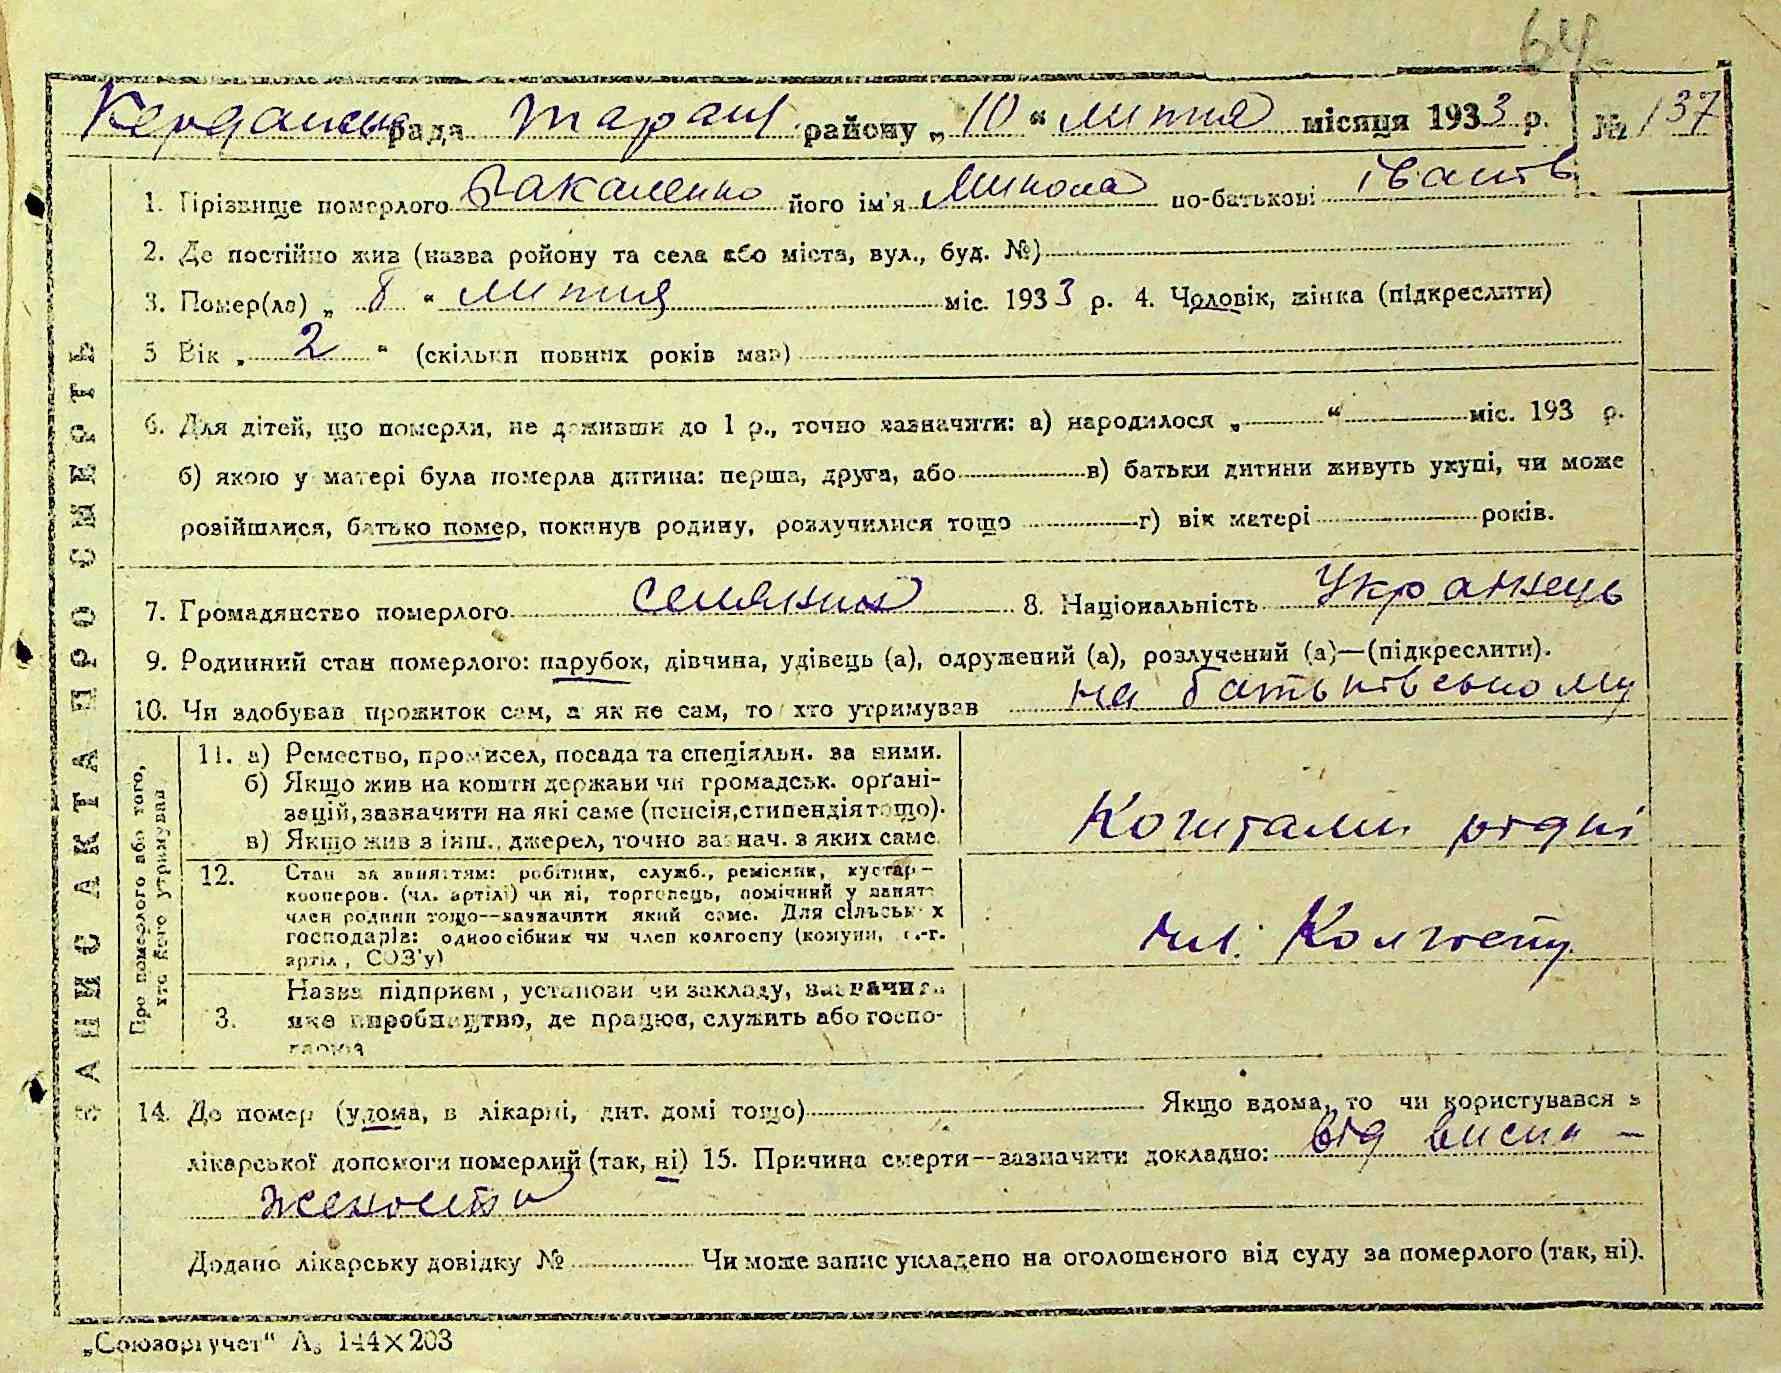 64
Керданська рада Таращ. району „10“ липня місяця 1933 р. № 137
1. Прізвище померлого Закаленко його ім'я Микола по-батькові Іванів
2. Де постійно жив (назва ройону та села або міста, вул., буд. №)
3. Помер(ла) „ 8 “ липня міс. 1933 р. 4. Чоловік, жінка (підкреслити)
5 Вік „ 2 “ (скільки повних років мав)
6. Для дітей, що померли, не доживши до 1 р., точно зазначити: а) народилося „ “ міс. 193 р.
б) якою у матері була померла дитина: перша, друга, або в) батьки дитини живуть укупі, чи може
розійшлися, батько помер, покинув родину, розлучилися тощо г) вік матері років.
7. Громадянство померлого селянин 8. Національність Українець
9. Родинний стан померлого: парубок, дівчина, удівець (а), одружений (а), розлучений (а)—(підкреслити).
10. Чи здобував прожиток сам, а як не сам, то хто утримував на батьківському
ЗАПИС АКТА ПРО СМЕРТЬ
Про померлого або того, хто його утримував
11. а) Ремество, промисел, посада та спеціяльн. за ними.
б) Якщо жив на кошти держави чи громадськ. орґані-
зацій, зазначити на які саме (пенсія, стипендія тощо).
в) Якщо жив з інш. джерел, точно зазнач. з яких саме.
Коштами рідні
12. Стан за заняттям: робітник, служб., ремісник, кустар-
кооперов. (чл. артілі) чи ні, торговець, помічний у занятт
член родини тощо—зазначити який саме. Для сільських
господарів: одноосібник чи член колгоспу (комуни, с.-г.
артіл., СОЗ'у)
чл. Колгоспу
3. Назва підприєм., установи чи закладу, зазначити
яке виробництво, де працює, служить або госпо-
дарює
14. Де помер (удома, в лікарні, дит. домі тощо) Якщо вдома, то чи користувався з
лікарської допомоги померлий (так, ні) 15. Причина смерти—зазначити докладно: від висна-
жености
Додано лікарську довідку № Чи може запис укладено на оголошеного від суду за померлого (так, ні).
„Союзоргучет“ А₅ 144×203